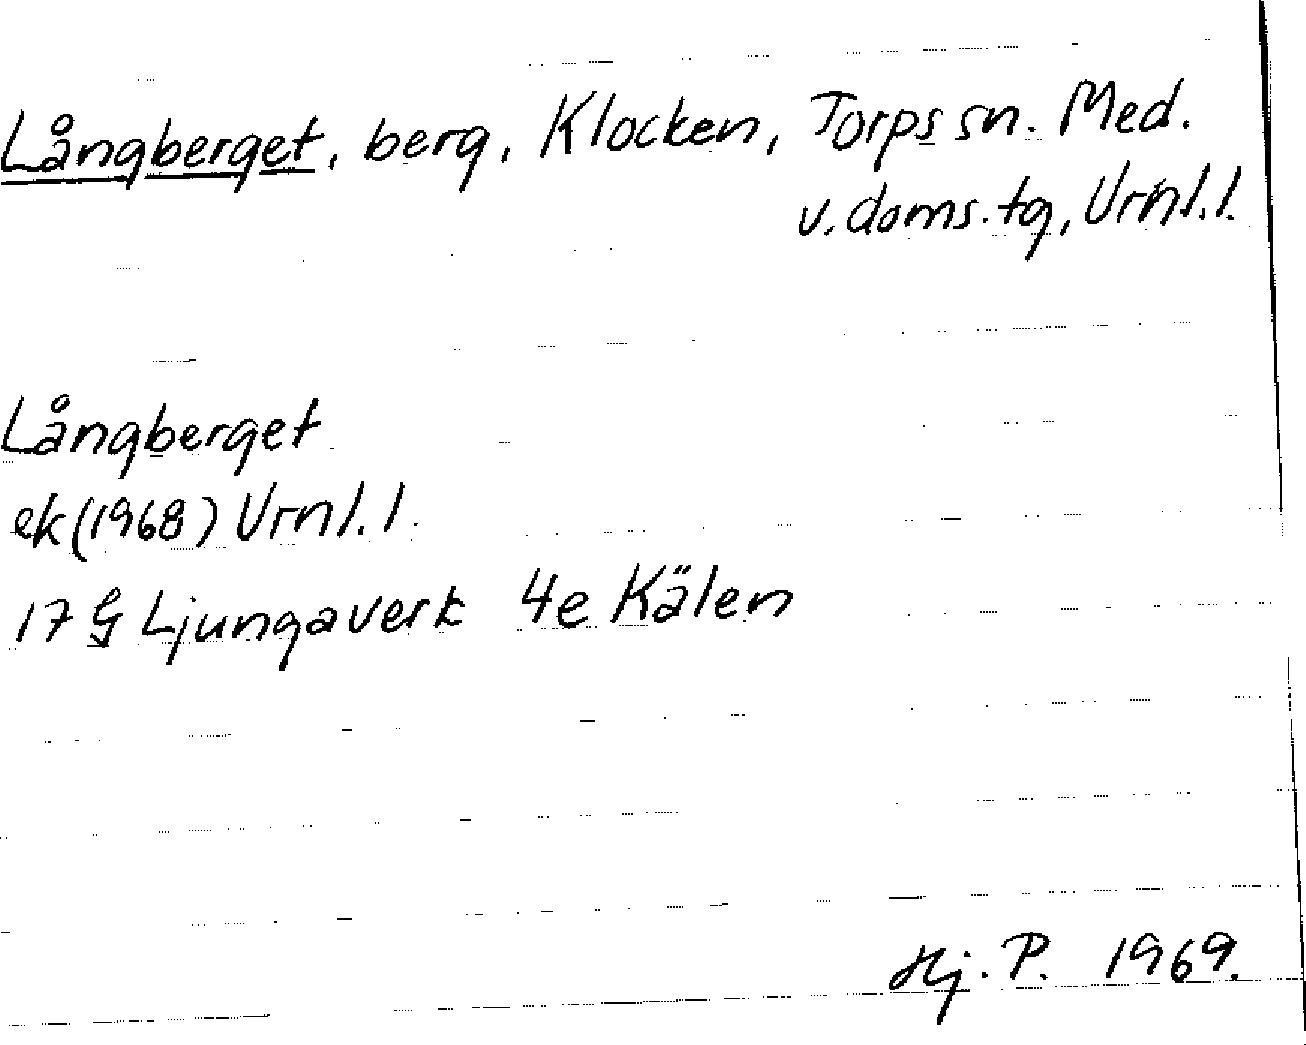 Långberget, berg, Klocken, Torps sn. Med.
v. doms. tg, Vrnl. l.
Långberget
ek (1968) Vrnl. l.
17 G Ljungaverk 4e Kälen
Hj. P. 1969.